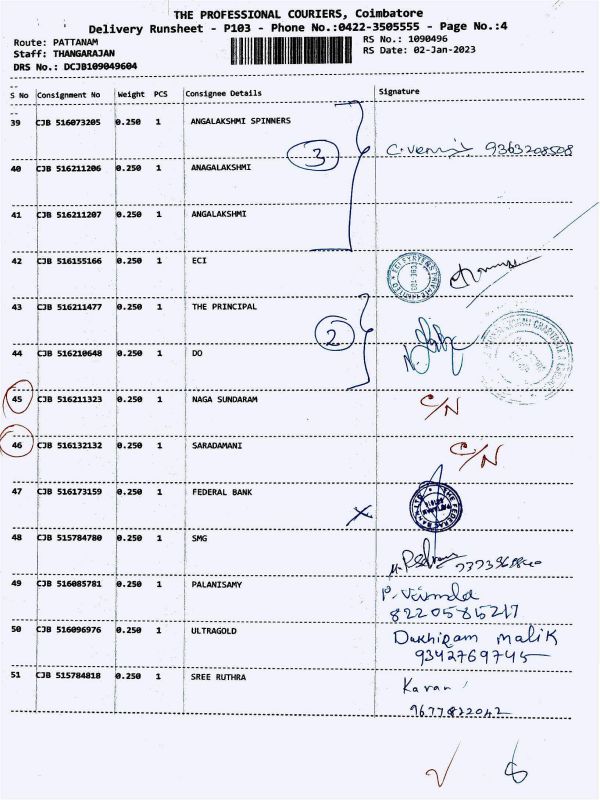 THE PROFESSIONAL COURIERS, Coimbatore
Delivery Runsheet - P103 - Phone No.:0422-3505555 - Page No.:4
Route: PATTANAM
RS No.: 1090496
Staff: THANGARAJAN
RS Date: 02-Jan-2023
DRS No.: DCJB109049604
S No Consignment No Weight PCS Consignee Details Signature
39 CJB 516073205 0.250 1 ANGALAKSHMI SPINNERS
3
9363208508
40 CJB 516211206 0.250 1 ANAGALAKSHMI
41 CJB 516211207 0.250 1 ANGALAKSHMI
42 CJB 516155166 0.250 1 ECI
43 CJB 516211477 0.250 1 THE PRINCIPAL
2
44 CJB 516210648 0.250 1 DO
45 CJB 516211323 0.250 1 NAGA SUNDARAM C/N
46 CJB 516132132 0.250 1 SARADAMANI C/N
47 CJB 516173159 0.250 1 FEDERAL BANK
THE FEDERAL BANK LTD
48 CJB 515784780 0.250 1 SMG
49 CJB 516085781 0.250 1 PALANISAMY
8220585217
50 CJB 516096976 0.250 1 ULTRAGOLD Malik
9342769745
51 CJB 515784818 0.250 1 SREE RUTHRA Karan
9677822042